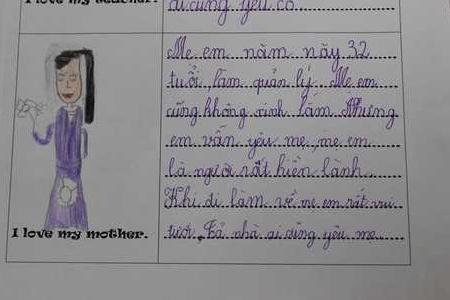 I love my teacher.
ai cũng yêu cô.
Mẹ em năm nay 32
tuổi, làm quản lý. Mẹ em
cũng không xinh lắm. Nhưng
em vẫn yêu mẹ, mẹ em
là người rất hiền lành.
Khi đi làm về mẹ em rất vui
tươi. Cả nhà ai cũng yêu mẹ.
I love my mother.